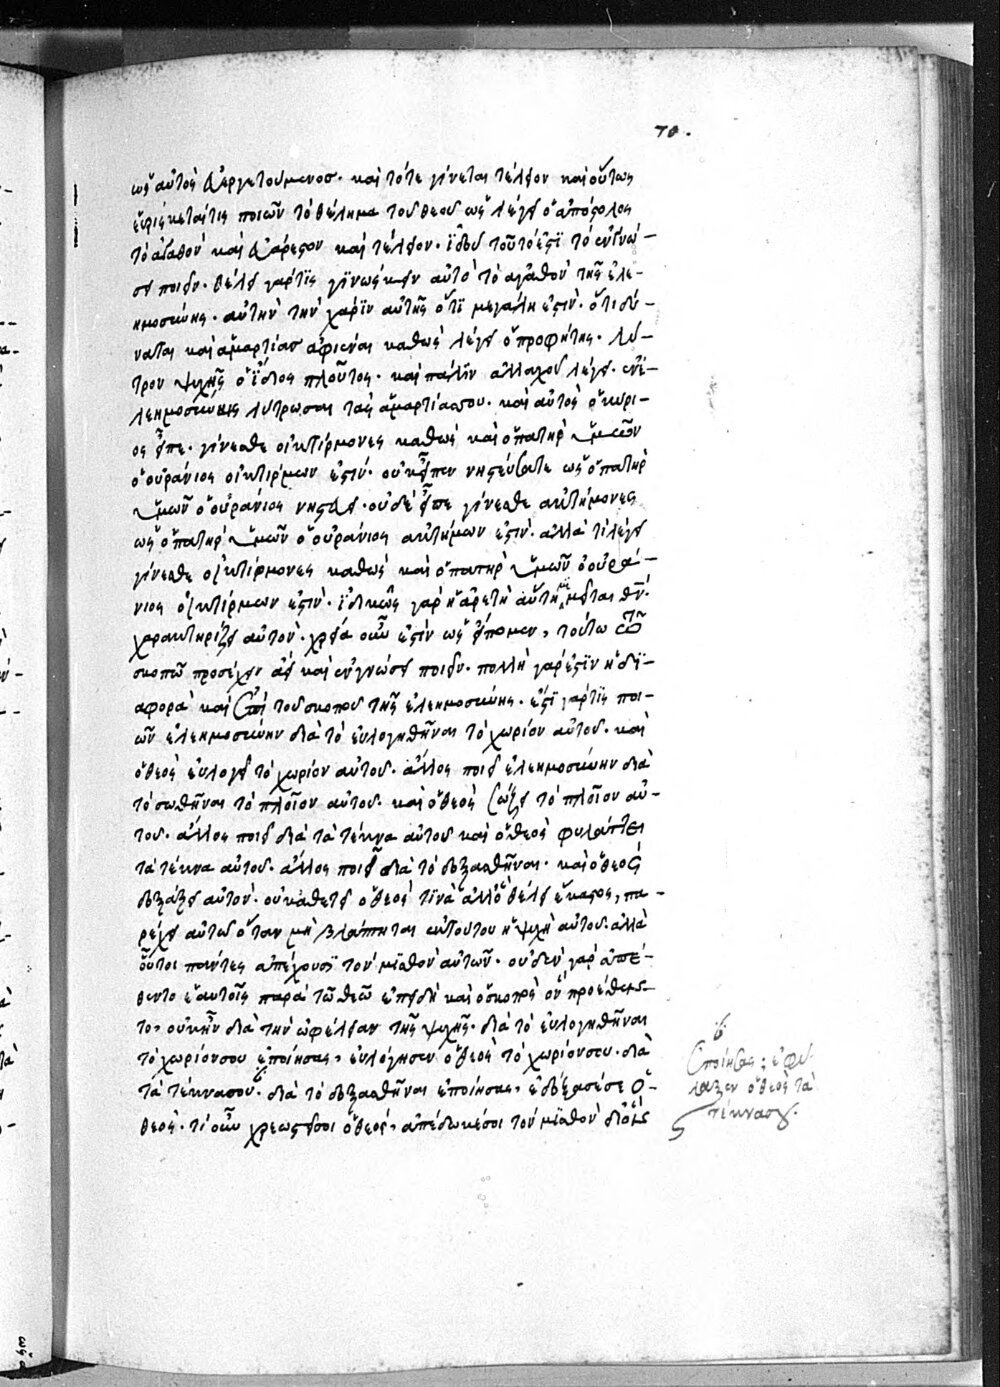 70.
ὡς αὐτὸς εὐεργετούμενος. καὶ τότε γίνεται τέλειον καὶ οὕτως
εὑρίσκεταί τις ποιῶν τὸ θέλημα τοῦ θεοῦ ὡς λέγει ὁ ἀπόστολος
τὸ ἀγαθὸν καὶ εὐάρεστον καὶ τέλειον. ἰδοὺ τοῦτό ἐστι τὸ ἐν γνώ-
σει ποιεῖν. θέλει γάρ τις γινώσκειν αὐτὸ τὸ ἀγαθὸν τῆς ἐλε-
ημοσύνης. αὐτὴν τὴν χάριν αὐτῆς ὅτι μεγάλη ἐστίν. ὅτι δύ-
ναται καὶ ἁμαρτίας ἀφιέναι καθὼς λέγει ὁ προφήτης. λύ-
τρον ψυχῆς ὁ ἴδιος πλοῦτος. καὶ πάλιν ἀλλαχοῦ λέγει. ἐν ἐ-
λεημοσύναις λύτρωσαι τὰς ἁμαρτίας σου. καὶ αὐτὸς ὁ κύρι-
ος εἶπε. γίνεσθε οἰκτίρμονες καθὼς καὶ ὁ πατὴρ ὑμῶν
ὁ οὐράνιος οἰκτίρμων ἐστίν. οὐκ εἶπεν νηστεύσατε ὡς ὁ πατὴρ
ὑμῶν ὁ οὐράνιος νηστεύει. οὐδὲ εἶπε γίνεσθε ἀκτήμονες
ὡς ὁ πατὴρ ὑμῶν ὁ οὐράνιος ἀκτήμων ἐστίν. ἀλλὰ τί λέγει
γίνεσθε οἰκτίρμονες καθὼς καὶ ὁ πατὴρ ὑμῶν ὁ οὐρά-
νιος οἰκτίρμων ἐστίν. ἰδικῶς γὰρ ἡ ἀρετὴ αὕτη μιμεῖται θν.
χαρακτηρίζει αὐτόν. χρεία οὖν ἐστὶν ὡς εἴπομεν, τούτω τῶ
σκοπῶ προσέχειν ἀεὶ καὶ ἐν γνώσει ποιεῖν. πολλὴ γάρ ἐστιν ἡ δι-
αφορὰ καὶ ἐπὶ τοῦ σκοποῦ τῆς ἐλεημοσύνης. ἔστι γάρ τις ποι-
ῶν ἐλεημοσύνην διὰ τὸ εὐλογηθῆναι τὸ χωρίον αὐτοῦ. καὶ
ὁ θεὸς εὐλογεῖ τὸ χωρίον αὐτοῦ. ἄλλος ποιεῖ ἐλεημοσύνην διὰ
τὸ σωθῆναι τὸ πλοῖον αὐτοῦ. καὶ ὁ θεὸς σώζει τὸ πλοῖον αὐ-
τοῦ. ἄλλος ποιεῖ διὰ τὰ τέκνα αὐτοῦ καὶ ὁ θεὸς φυλάττει
τὰ τέκνα αὐτοῦ. ἄλλος ποιεῖ διὰ τὸ δοξασθῆναι. καὶ ὁ θεὸς
δοξάζει αὐτόν. οὐκ ἀθετεῖ ὁ θεὸς τινὰ ἀλλ' ὃ θέλει ἕκαστος, πα-
ρέχει αὐτῶ ὅταν μὴ βλάπτηται ἐν τούτου ἡ ψυχὴ αὐτοῦ. ἀλλὰ
οὗτοι πάντες ἀπέχουσι τὸν μισθὸν αὐτῶν. οὐδὲν γὰρ ἀπέ-
θεντο ἑαυτοῖς παρὰ τῶ θεῶ ἐπειδὴ καὶ ὁ σκοπὸς ὃν προέθεν-
το, οὐκ ἦν διὰ τὴν ὠφέλειαν τῆς ψυχῆς. διὰ τὸ εὐλογηθῆναι
τὸ χωρίον σου ἐποίησας, εὐλόγησεν ὁ θεὸς τὸ χωρίον σου. διὰ
τὰ τέκνα σου. διὰ τὸ δοξασθῆναι ἐποίησας, ἐδόξασέ σε ὁ
θεός. τί οὖν χρεωστεῖ σοι ὁ θεός, ἀπέδωκέ σοι τὸν μισθὸν δι' ὃν
ἐποίησας; ἐφύ-
λαξεν ὁ θεὸς τὰ
τέκνα σου.